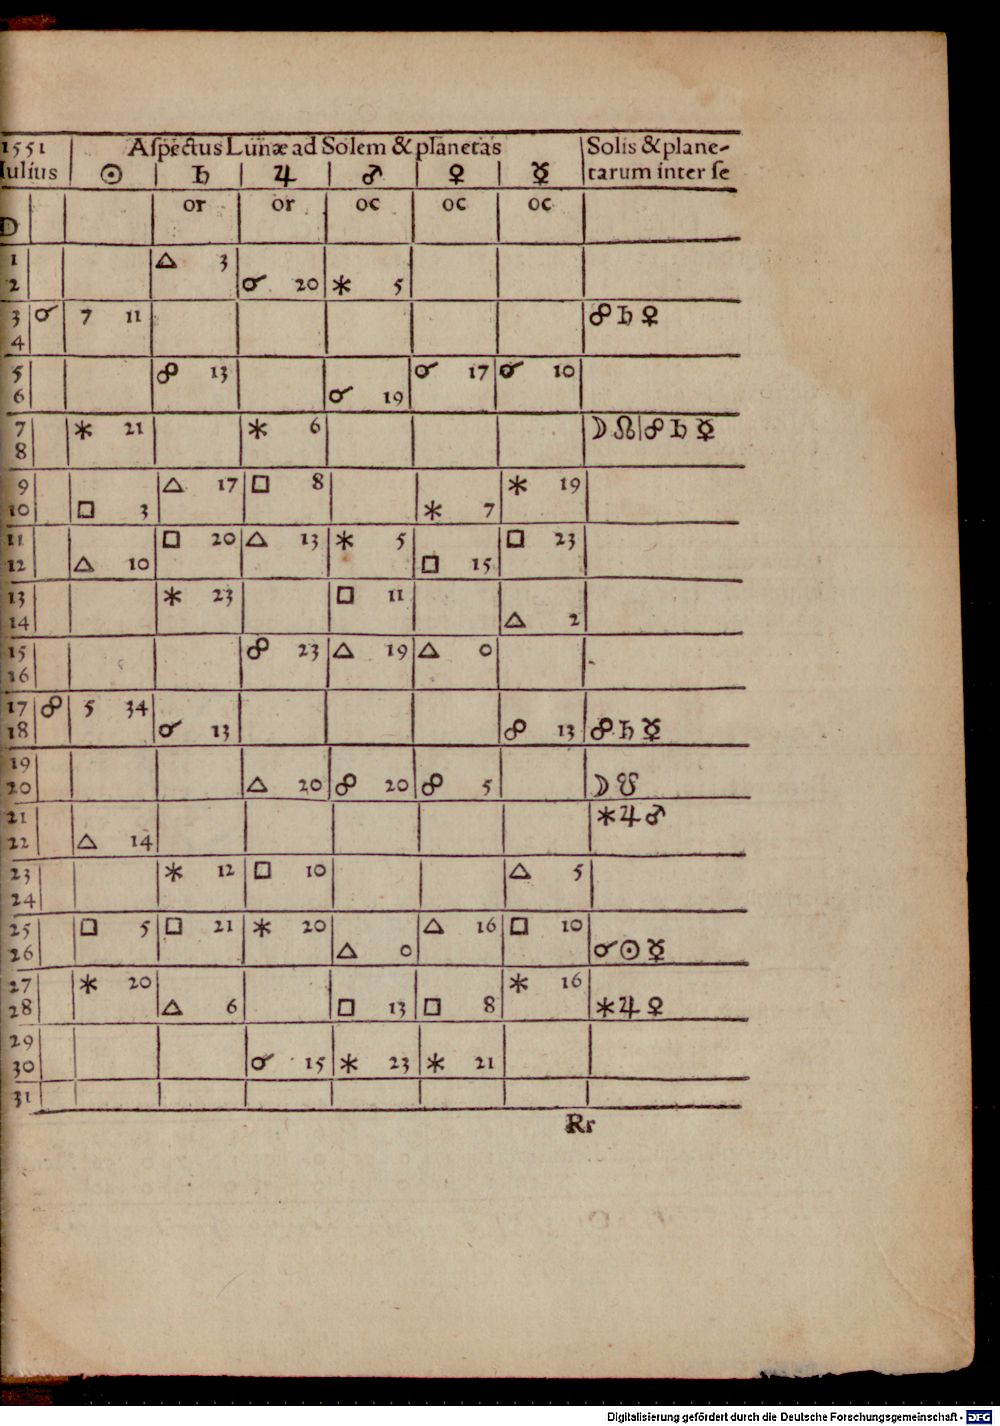 1551 | Aspectus Lunæ ad Solem & planetas | Solis & plane-
Iulius | ☉ | ♄ | ♃ | ♂ | ♀ | ☿ | tarum inter se
D | | | or | or | oc | oc | oc |
1 | | | △ 3 | | | | |
2 | | | | ☌ 20 | ⚹ 5 | | |
3 | ☌ | 7 11 | | | | | | ☍ ♄ ♀
4
5 | | | ☍ 13 | | | ☌ 17 | ☌ 10 |
6 | | | | | ☌ 19 | | |
7 | | ⚹ 21 | | ⚹ 6 | | | | ☽ ☊ | ☍ ♄ ☿
8
9 | | | △ 17 | □ 8 | | | ⚹ 19 |
10 | | □ 3 | | | | ⚹ 7 | |
11 | | | □ 20 | △ 13 | ⚹ 5 | | □ 23 |
12 | | △ 10 | | | | □ 15 | |
13 | | | ⚹ 23 | | □ 11 | | |
14 | | | | | | | △ 2 |
15 | | | | ☍ 23 | △ 19 | △ 0 | |
16
17 | ☍ | 5 34 | | | | | |
18 | | | ☌ 13 | | | | ☍ 13 | ☍ ♄ ☿
19
20 | | | | △ 20 | ☍ 20 | ☍ 5 | | ☽ ☋
21 | | | | | | | | ⚹ ♃ ♂
22 | | △ 14 | | | | | |
23 | | | ⚹ 12 | □ 10 | | | △ 5 |
24
25 | | □ 5 | □ 21 | ⚹ 20 | | △ 16 | □ 10 |
26 | | | | | △ 0 | | | ☌ ☉ ☿
27 | | ⚹ 20 | | | | | ⚹ 16 |
28 | | | △ 6 | | □ 13 | □ 8 | | ⚹ ♃ ♀
29
30 | | | | ☌ 15 | ⚹ 23 | ⚹ 21 | |
31
Rr
Digitalisierung gefördert durch die Deutsche Forschungsgemeinschaft - DFG